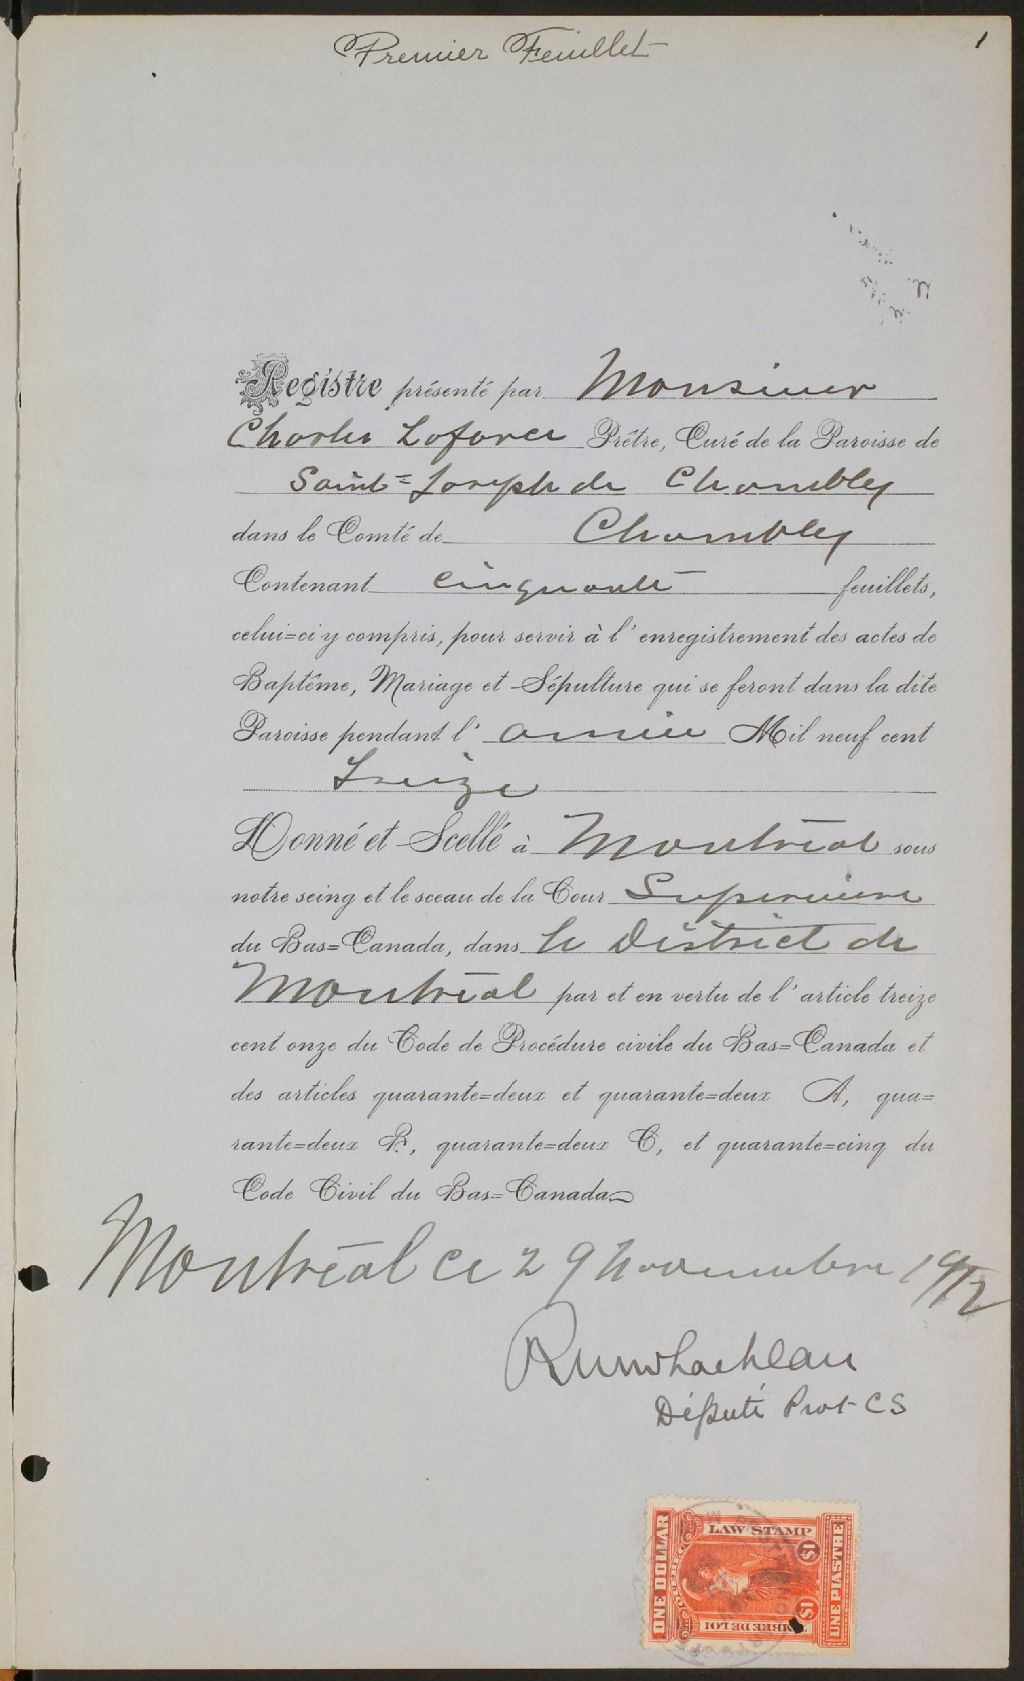 Premier Feuillet
1
Registre présenté par Monsieur
Charles Laforce Prêtre, Curé de la Paroisse de
Saint=Joseph de Chambly
dans le Comté de Chambly
Contenant cinquante feuillets,
celui=ci y compris, pour servir à l'enregistrement des actes de
Baptême, Mariage et Sépulture qui se feront dans la dite
Paroisse pendant l'année Mil neuf cent
treize
Donné et Scellé à Montréal sous
notre seing et le sceau de la Cour Superieure
du Bas=Canada, dans le District de
Montréal par et en vertu de l'article treize
cent onze du Code de Procédure civile du Bas=Canada et
des articles quarante=deux et quarante=deux A, qua=
rante=deux B, quarante=deux C, et quarante=cinq du
Code Civil du Bas=Canada
Montréal ce 29 Novembre 1912
Député Prot CS
LAW STAMP
ONE DOLLAR
QUEBEC
$1
$1
UNE PIASTRE
TIMBRE DE LOI